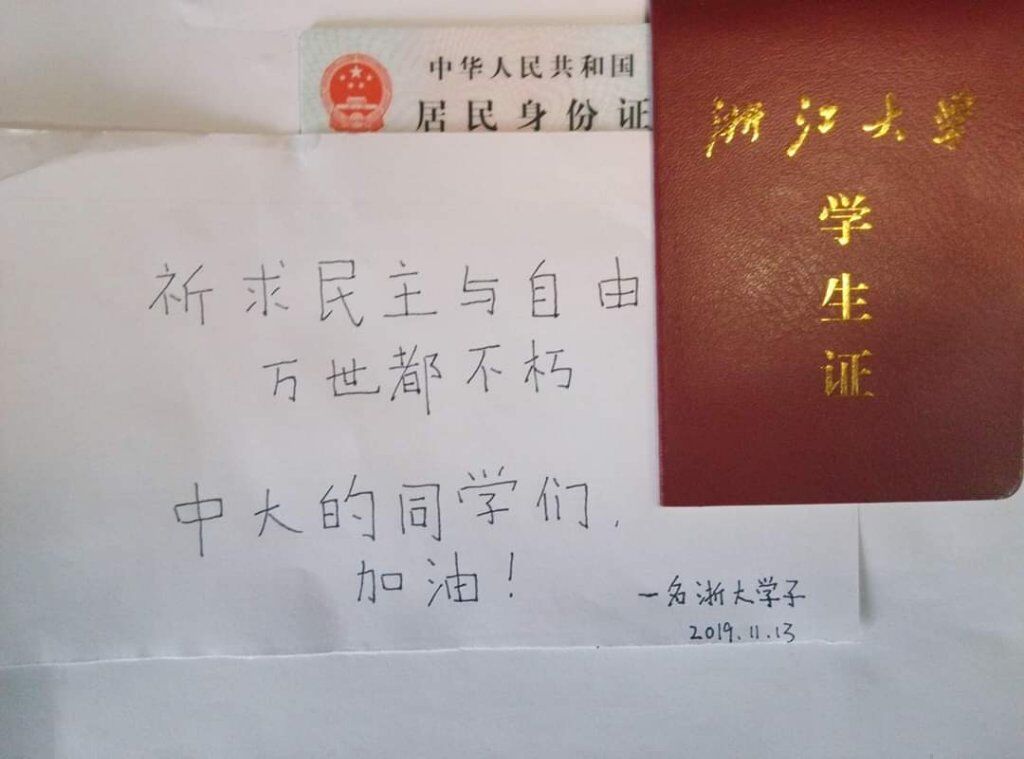 中华人民共和国
居民身份证
浙江大学
学
生
证
祈求民主与自由
万世都不朽
中大的同学们,
加油!
一名浙大学子
2019.11.13